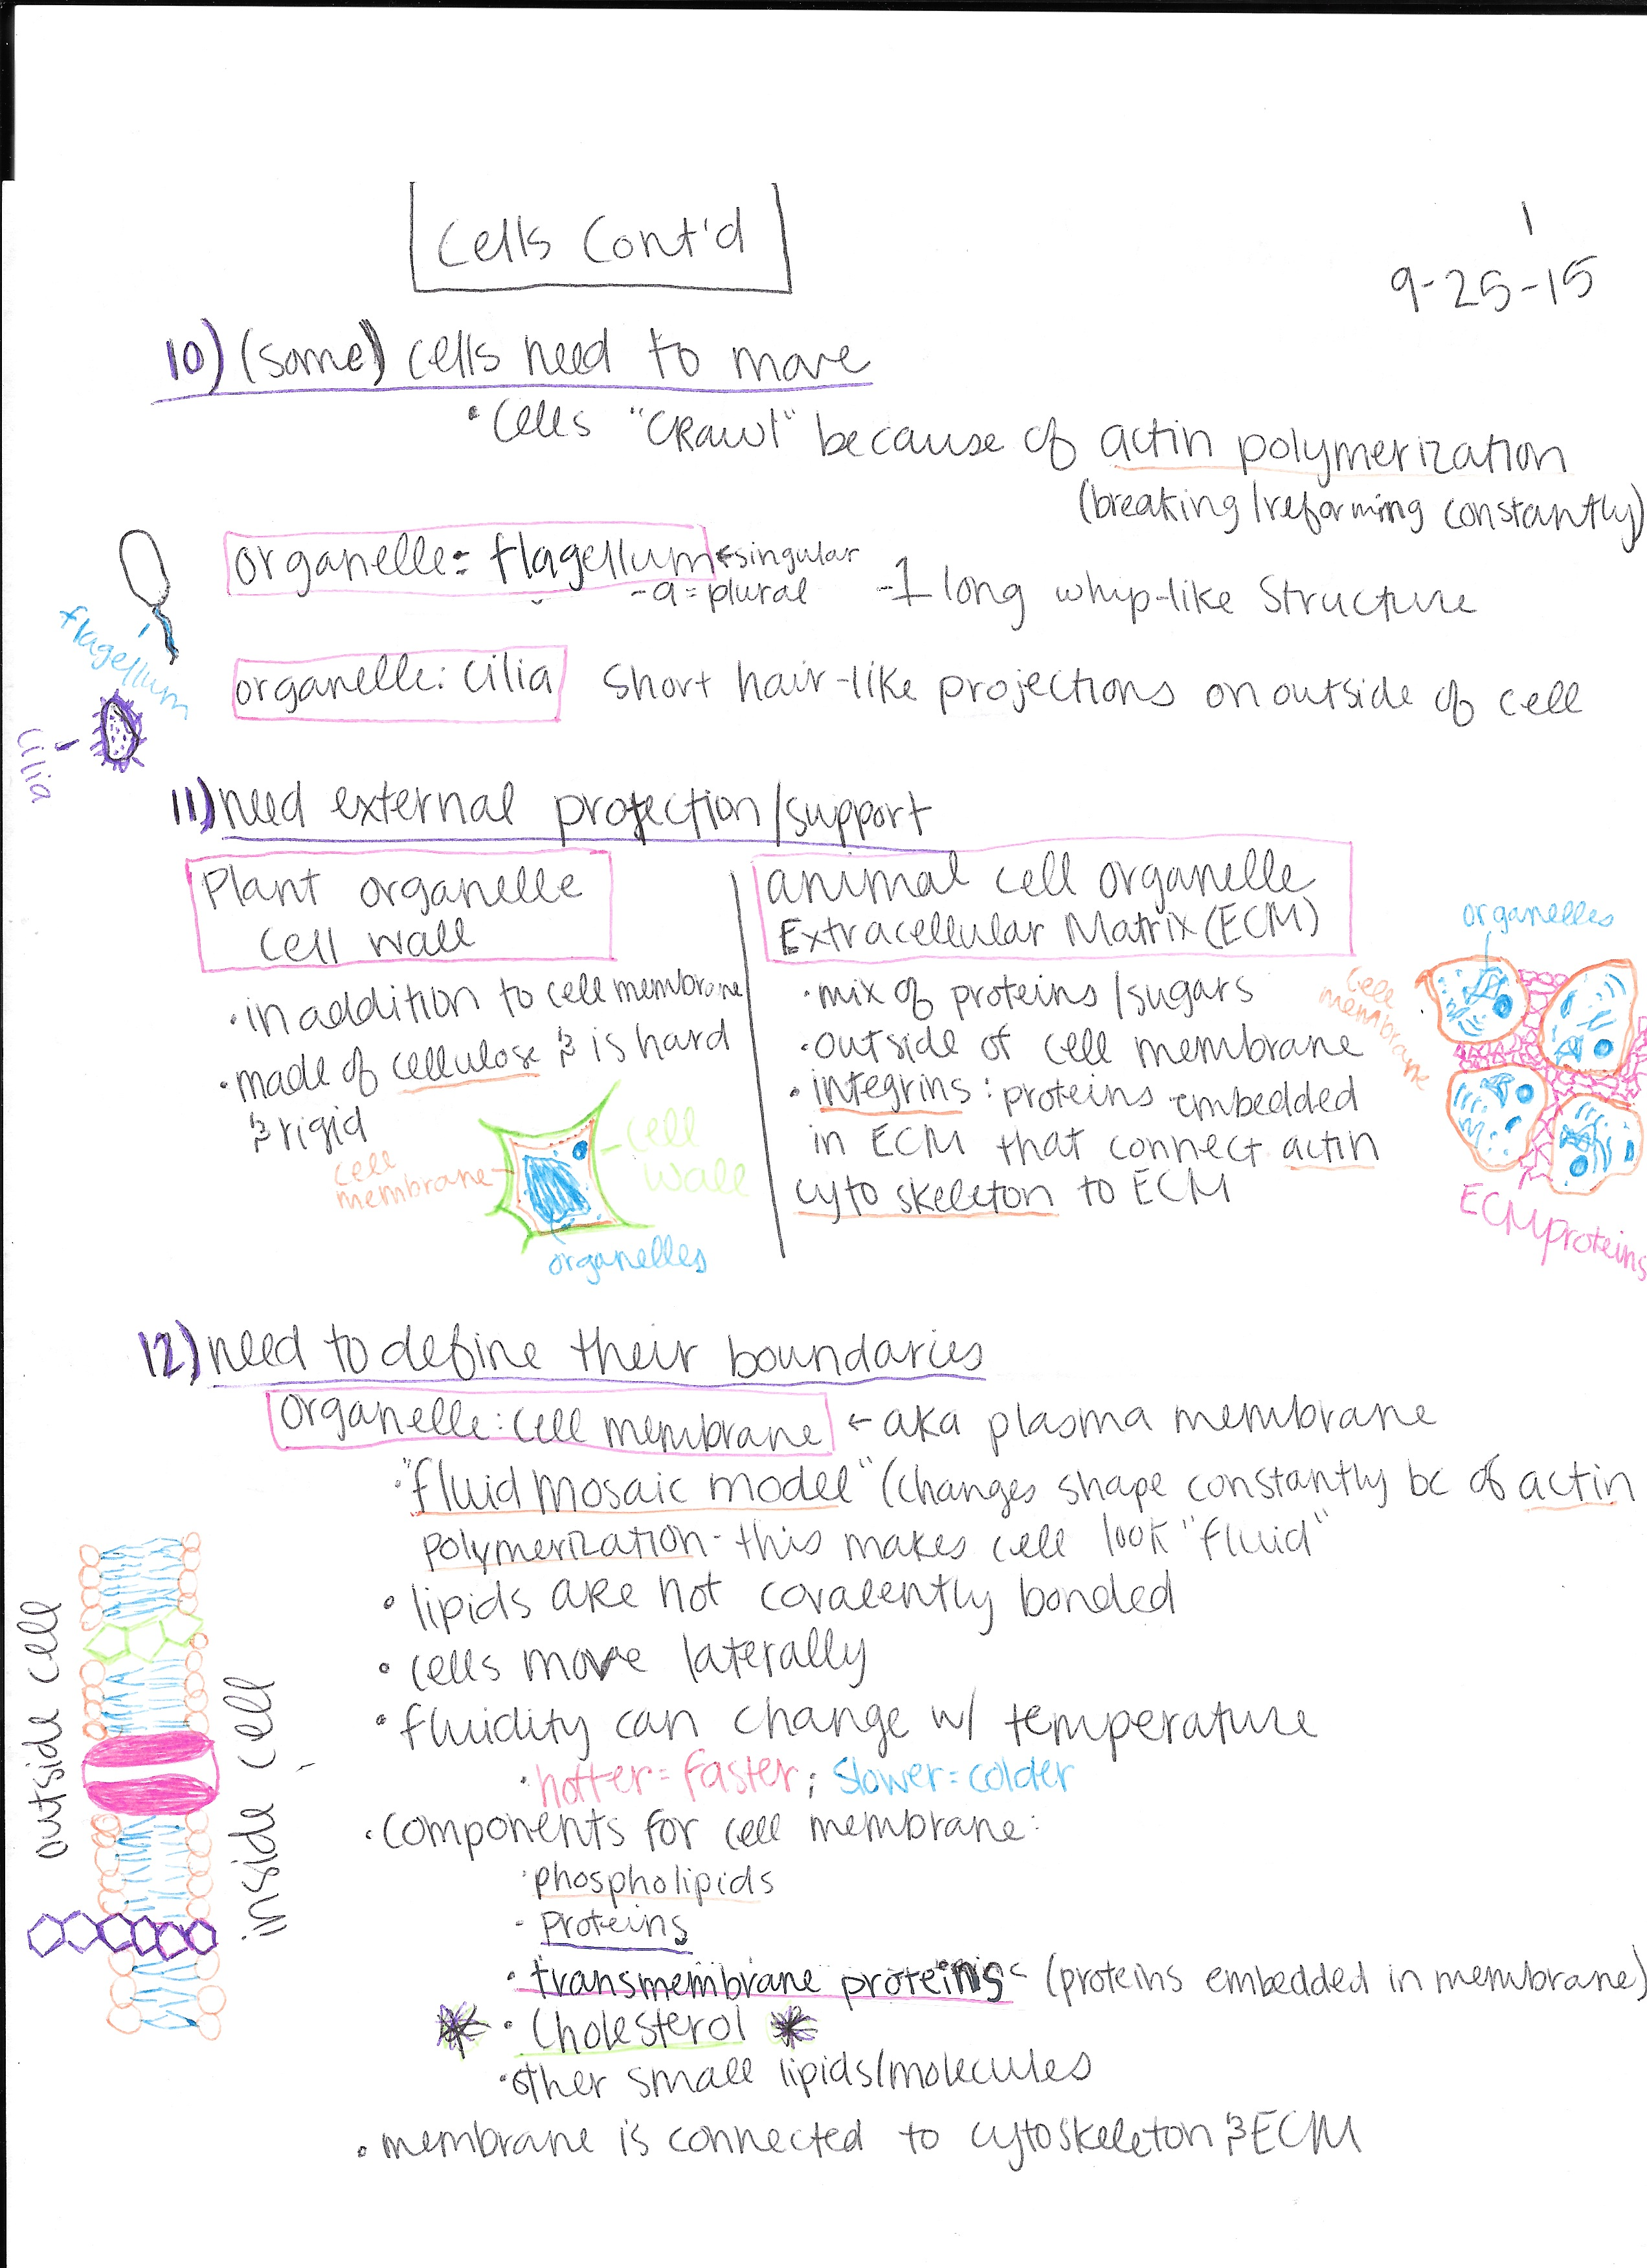 Cells Cont'd
1
9-25-15
10) (some) cells need to move
• Cells "CRawl" because of actin polymerization
(breaking/reforming constantly)
organelle: flagellum ←singular
-a = plural
-1 long whip-like Structure
flagellum
organelle: cilia short hair-like projections on outside of cell
cilia
11) need external protection/support
Plant organelle
cell wall
• in addition to cell membrane
• made of cellulose & is hard
& rigid
cell
membrane
cell
wall
organelles
animal cell organelle
Extracellular Matrix (ECM)
• mix of proteins/sugars
• outside of cell membrane
• integrins: proteins embedded
in ECM that connect actin
cytoskeleton to ECM
organelles
cell
membrane
ECM proteins
12) need to define their boundaries
Organelle: cell membrane ← aka plasma membrane
• "fluid mosaic model" (changes shape constantly bc of actin
polymerization - this makes cell look "fluid"
• lipids are not covalently bonded
• cells move laterally
• fluidity can change w/ temperature
• hotter = faster; slower = colder
• components for cell membrane:
• phospholipids
- proteins
• transmembrane proteins (proteins embedded in membrane)
• Cholesterol
• other small lipids/molecules
• membrane is connected to cytoskeleton & ECM
outside cell
inside cell